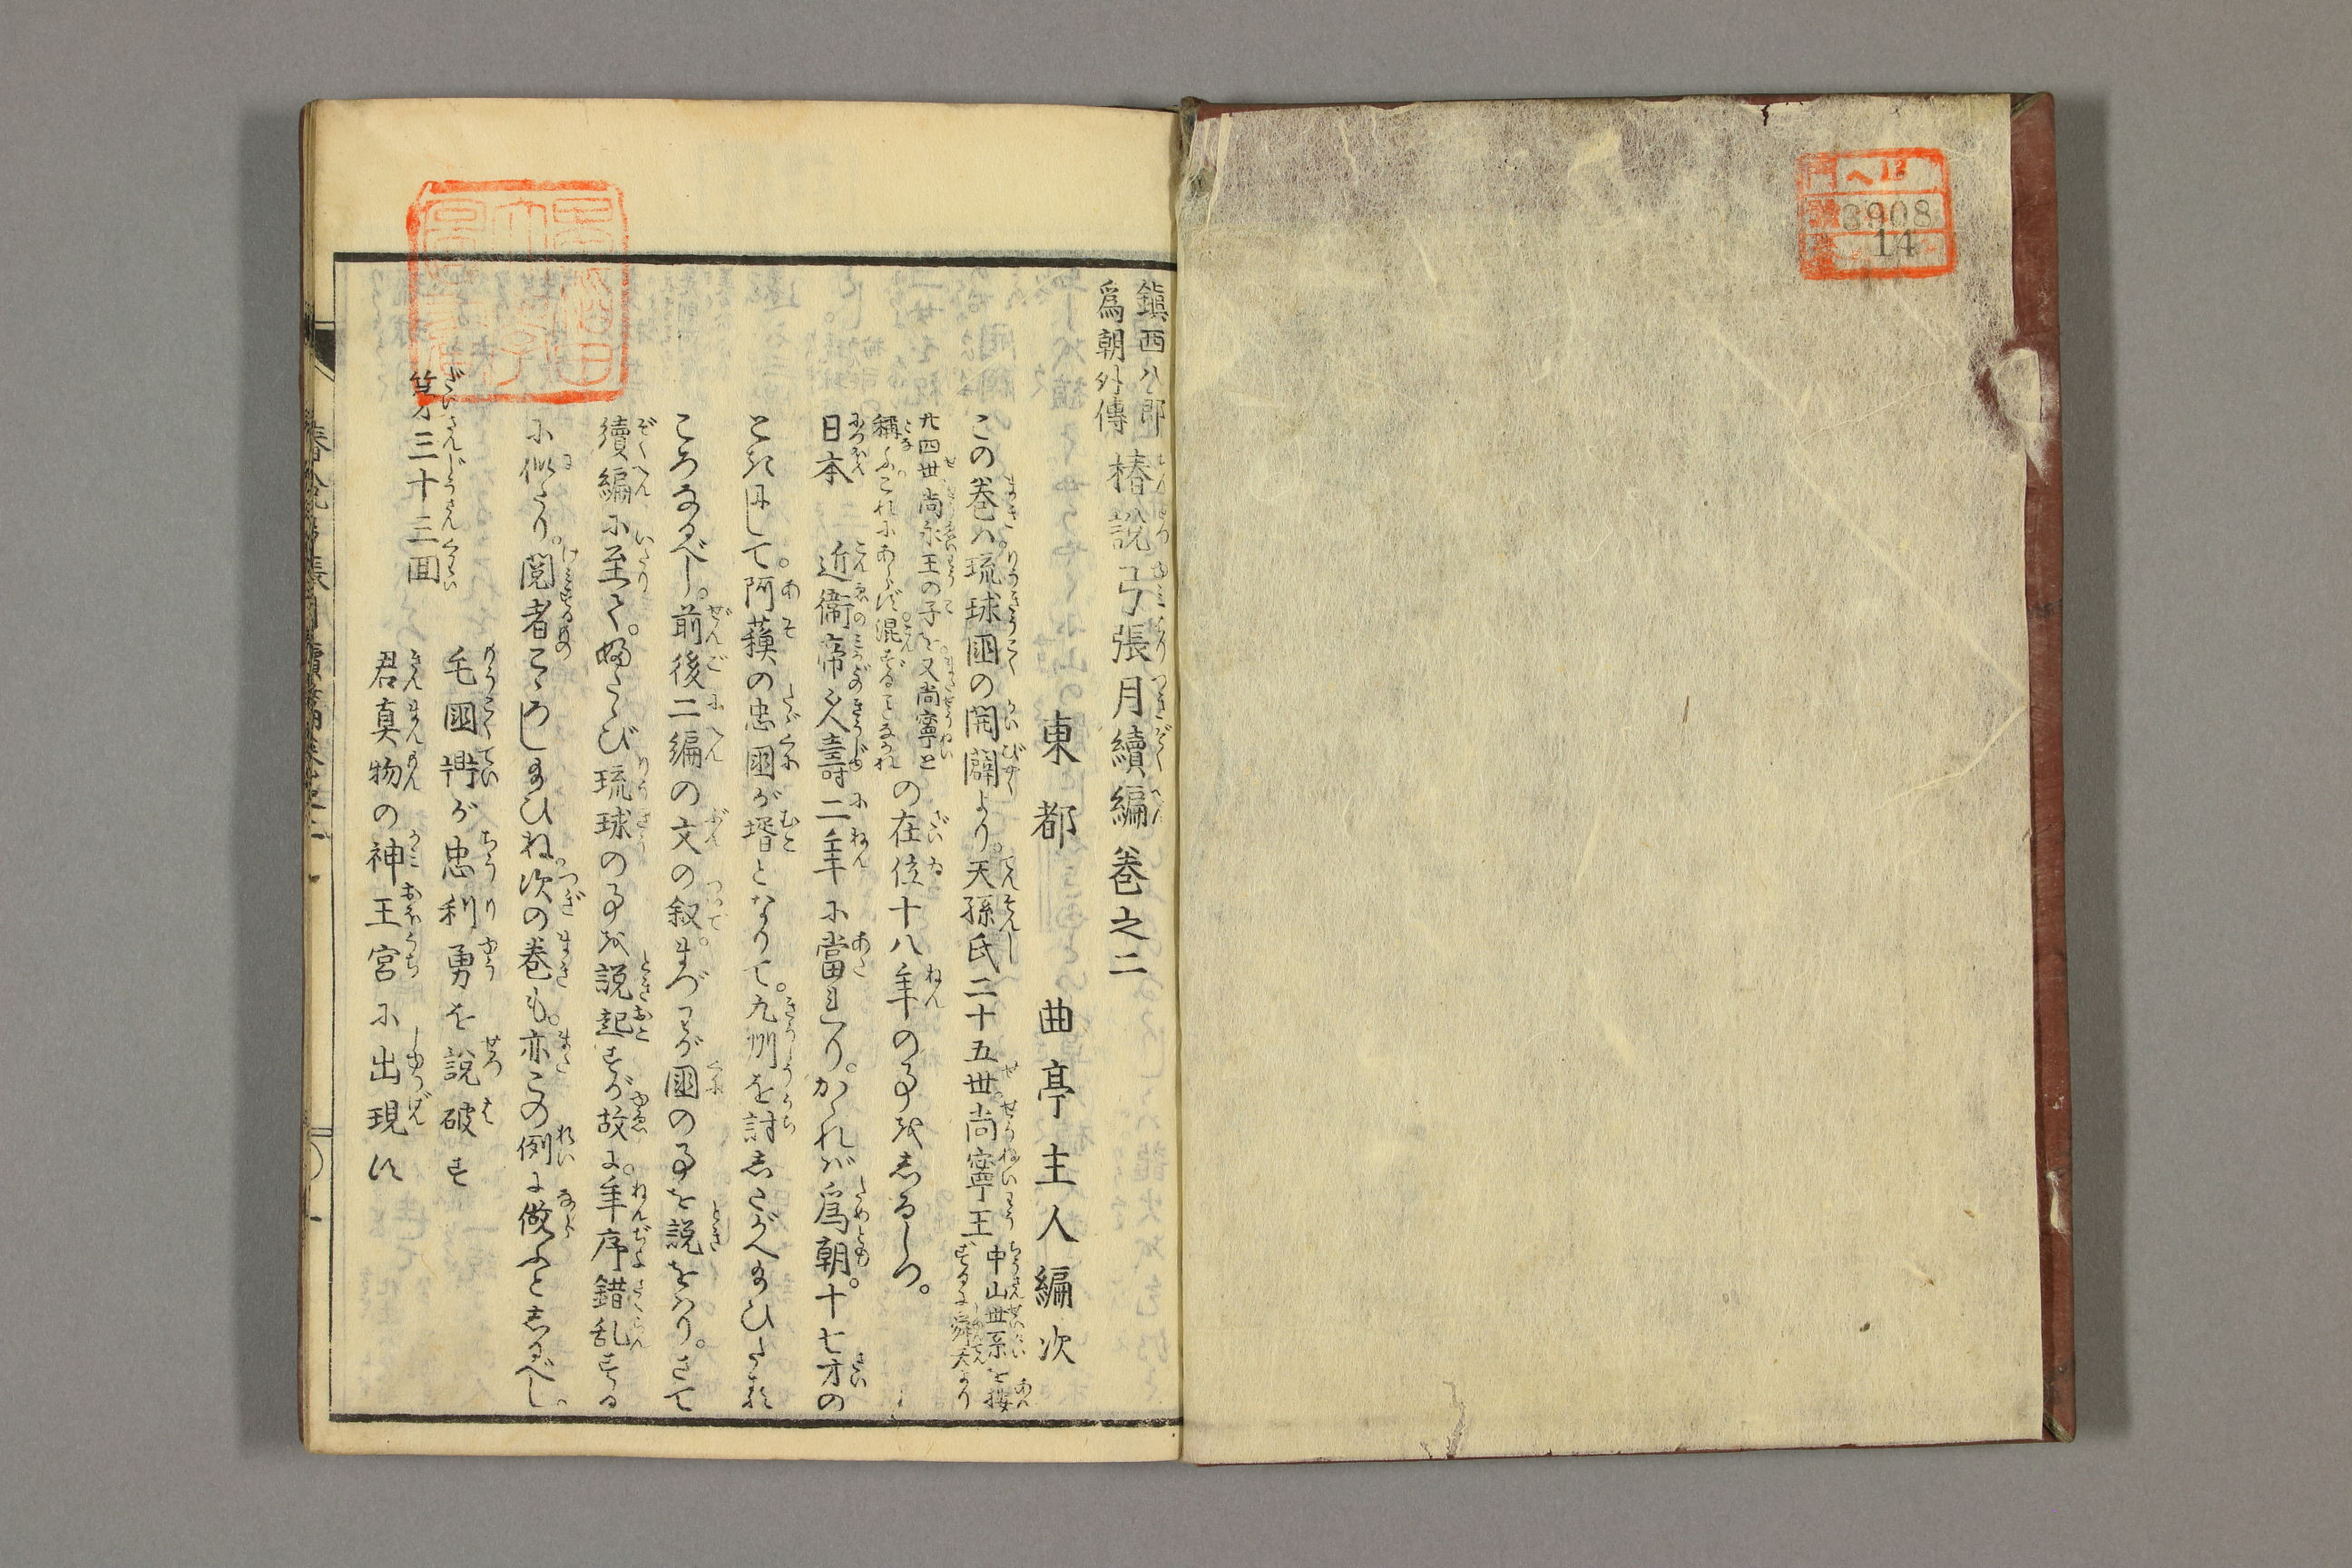 門 ヘ13
號 3908
卷 14
鎭西八郎
爲朝外傳
椿說弓張月續編卷之二
東都 曲亭主人編次
この巻ハ琉球國の開闢より。天孫氏二十五世。尚寧王
中山世系を按
ずるに舜天より
廿四世尚永王の子を。又尚寧と
稱ふ。これにあらず。混ずることなかれ
の在位十八年の事をしるしつ。
日本 近衞帝久壽二年に當れり。かゝれば爲朝。十七才の
ときにして。阿蘓の忠國が壻となりて。九州を討したがへ給ひたる
ころなるべし。前後二編の文の叙。まづわが國の事を説をハり。さて
續編に至て。ふたゝび琉球の事を説起すが故に。年序錯乱する
に似たり。閲者こゝろし給ひね。次の巻も。亦この例に倣ふとしるべし
第三十三回
毛國鼎が忠利勇を說破す
君真物の神王宮に出現す